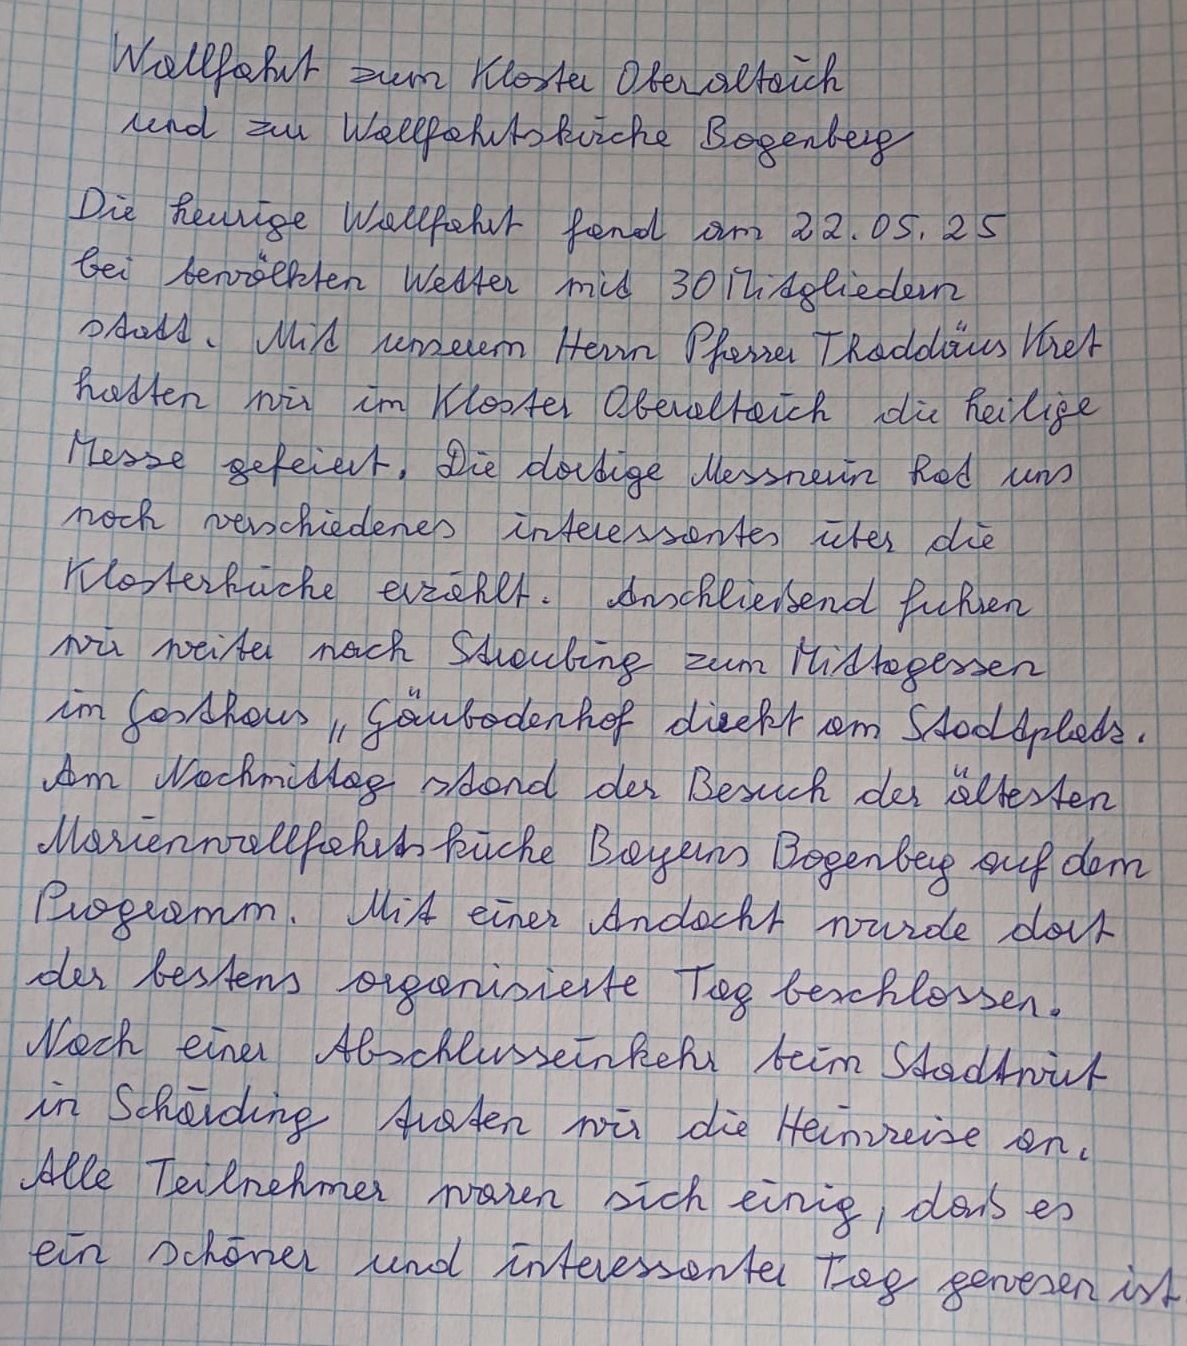 Wallfahrt zum Kloster Oberalteich
und zur Wallfahrtskirche Bogenberg
Die heurige Wallfahrt fand am 22.05.25
bei bewölkten Wetter mit 30 Mitgliedern
statt. Mit unserem Herrn Pfarrer Thaddäus Kret
hatten wir im Kloster Oberalteich die heilige
Messe gefeiert. Die dortige Messnerin hat uns
noch verschiedenes interessantes über die
Klosterkirche erzählt. Anschließend fuhren
wir weiter nach Straubing zum Mittagessen
im Gasthaus „Gäubodenhof direkt am Stadtplatz.
Am Nachmittag stand der Besuch der ältesten
Marienwallfahrtskirche Bayerns Bogenberg auf dem
Programm. Mit einer Andacht wurde dort
der bestens organisierte Tag beschlossen.
Nach einer Abschlusseinkehr beim Stadtwirt
in Schärding traten wir die Heimreise an.
Alle Teilnehmer waren sich einig, daß es
ein schöner und interessanter Tag gewesen ist